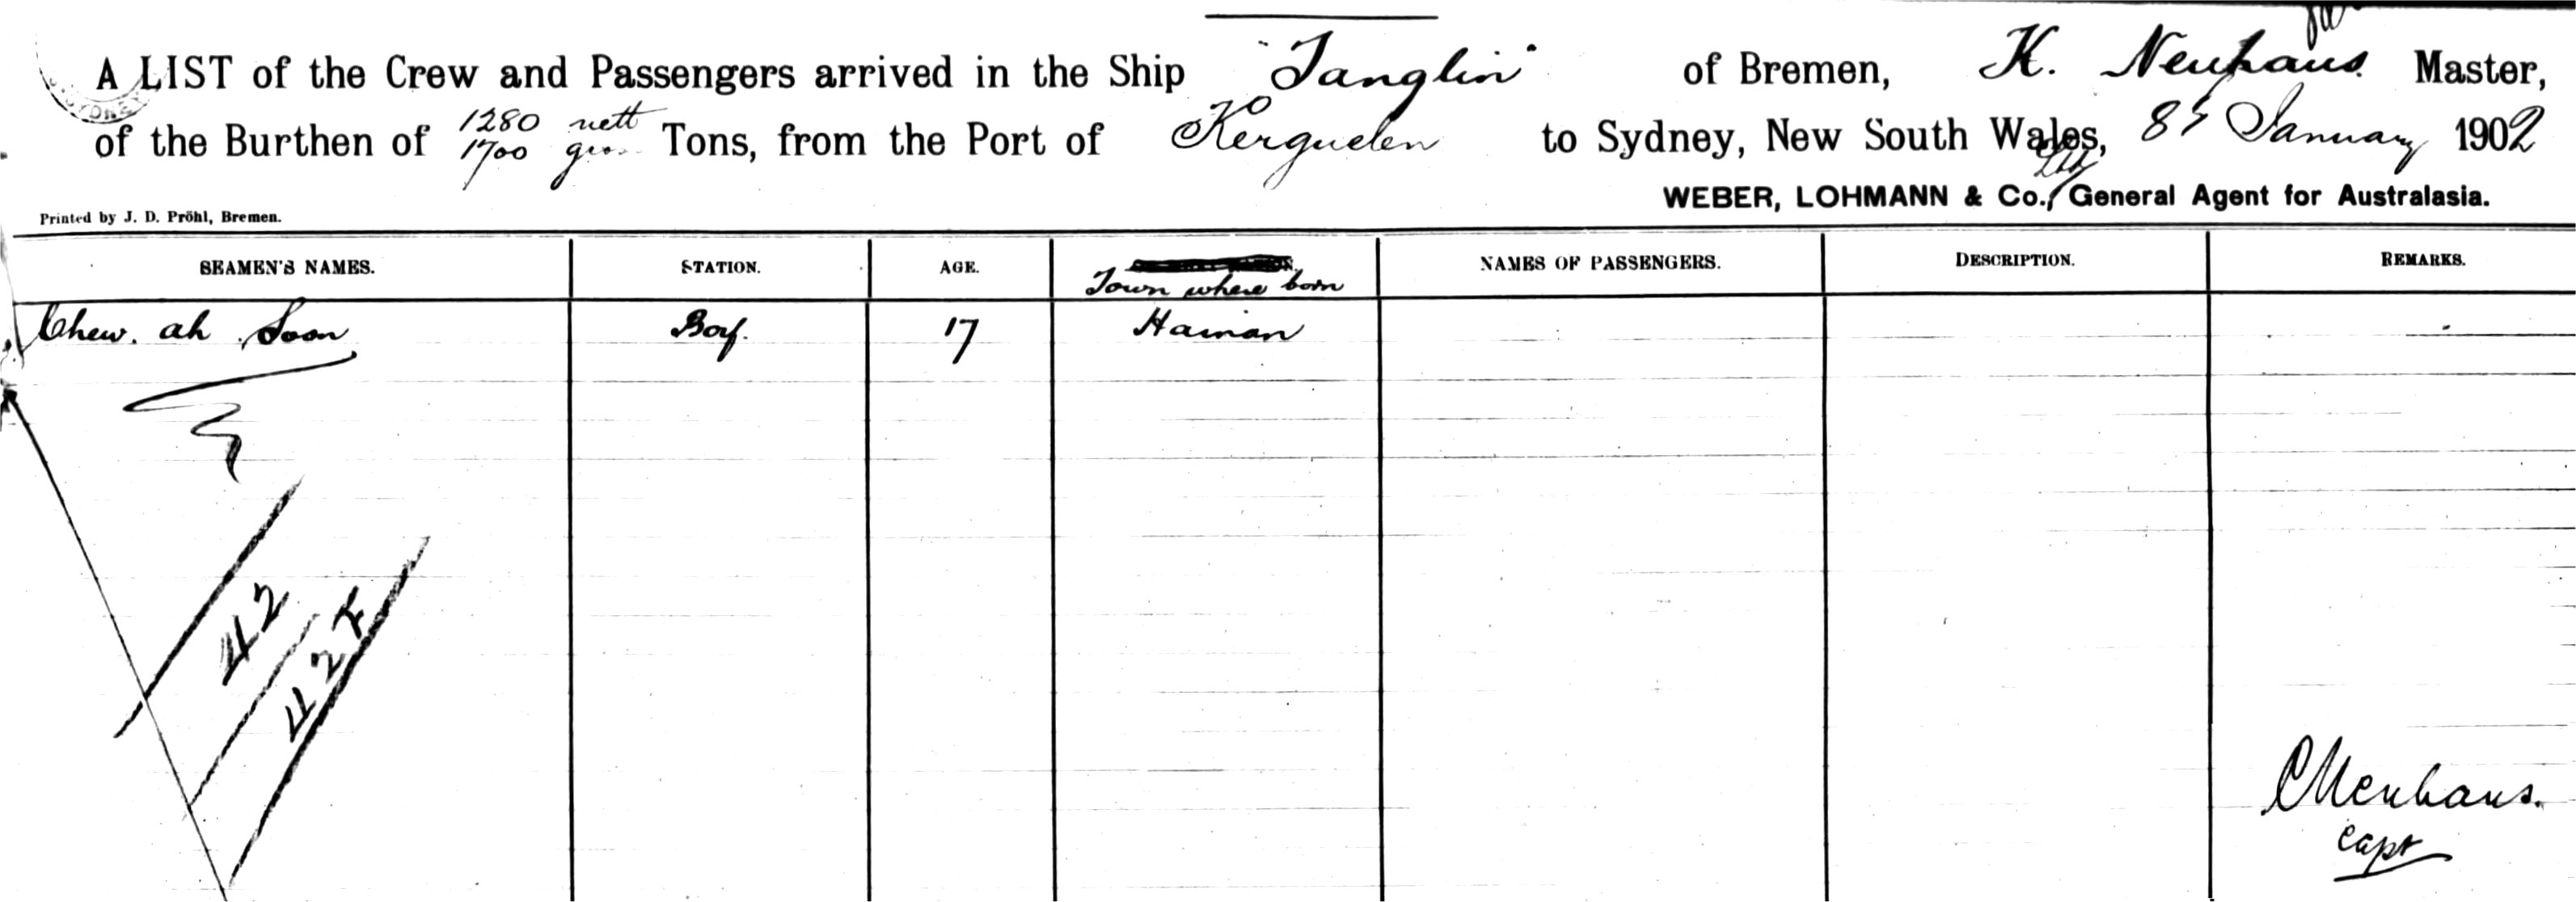 A LIST of the Crew and Passengers arrived in the Ship "Tanglin" of Bremen, K. Neuhaus Master,
of the Burthen of 1280 nett 1700 gros Tons, from the Port of Kerguelen to Sydney, New South Wales, 8th January 1902
WEBER, LOHMANN & Co., Ltd General Agent for Australasia.
Printed by J. D. Pröhl, Bremen.
SEAMEN'S NAMES. STATION. AGE. Town where born NAMES OF PASSENGERS. DESCRIPTION. REMARKS.
Chew. ah Soon Boy. 17 Hainan
42
42
CNeuhaus.
Capt